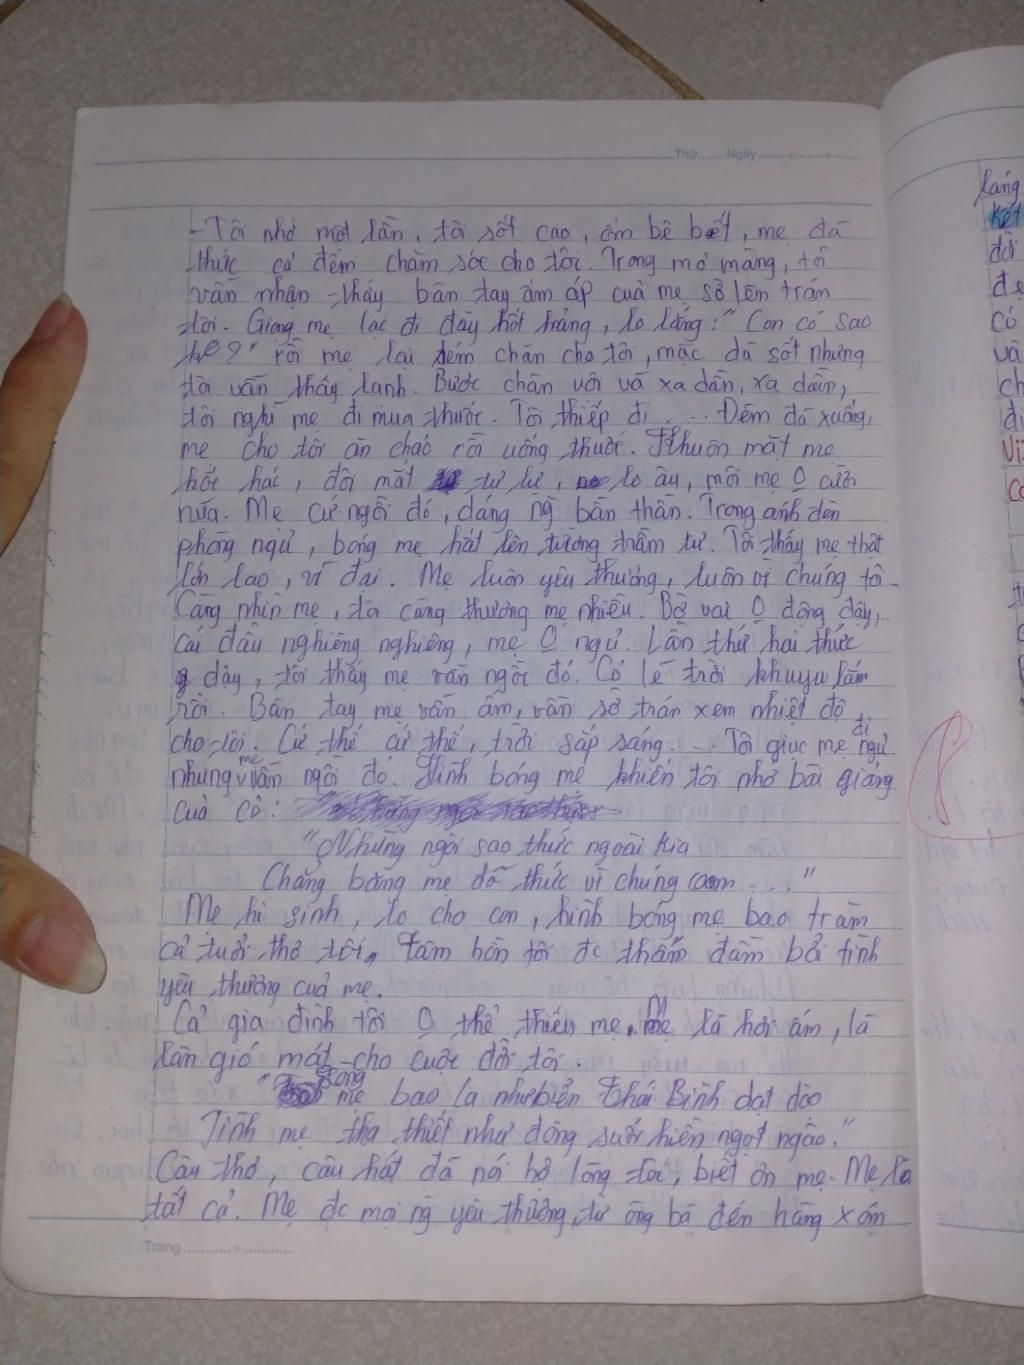 Thứ...... Ngày...........
- Tôi nhớ một lần, tôi sốt cao, ốm bê bết, mẹ đã
thức cả đêm chăm sóc cho tôi. Trong mơ màng, tôi
vẫn nhận thấy bàn tay ấm áp của mẹ sờ lên trán
tôi. Giọng mẹ lạc đi đầy hốt hoảng, lo lắng: "Con có sao
ko?" rồi mẹ lại đem chăn cho tôi, mặc dù sốt nhưng
tôi vẫn thấy lạnh. Bước chân vội vã xa dần, xa dần,
tôi nghĩ mẹ đi mua thuốc. Tôi thiếp đi ... Đêm đã xuống,
mẹ cho tôi ăn cháo rồi uống thuốc. Khuôn mặt mẹ
hốc hác, đôi mắt tư lự, lo âu, môi mẹ 0 cười
nữa. Mẹ cứ ngồi đó, dáng ng bần thần. Trong ánh đèn
phòng ngủ, bóng mẹ hắt lên tường trầm tư. Tôi thấy mẹ thật
lớn lao, vĩ đại. Mẹ luôn yêu thương, luôn vì chúng tôi.
Càng nhìn mẹ, tôi càng thương mẹ nhiều. Bờ vai 0 động đậy,
cái đầu nghiêng nghiêng, mẹ 0 ngủ. Lần thứ hai thức
dậy, tôi thấy mẹ vẫn ngồi đó. Có lẽ trời khuya lắm
rồi. Bàn tay mẹ vẫn ấm, vẫn sờ trán xem nhiệt độ
cho tôi. Cứ thế cứ thế, trời sắp sáng. ... Tôi giục mẹ ngủ đi
nhưng mẹ vẫn ngồi đó. Hình bóng mẹ khiến tôi nhớ bài giảng
của cô:
"Những ngôi sao thức ngoài kia
Chẳng bằng mẹ đã thức vì chúng con ..."
Mẹ hi sinh, lo cho con, hình bóng mẹ bao trùm
cả tuổi thơ tôi. Tâm hồn tôi đc thấm đẫm bởi tình
yêu thương của mẹ.
Cả gia đình tôi 0 thể thiếu mẹ. Mẹ là hơi ấm, là
làn gió mát cho cuộc đời tôi.
"Lòng mẹ bao la như biển Thái Bình dạt dào
Tình mẹ tha thiết như dòng suối hiền ngọt ngào."
Câu thơ, câu hát đã nói hộ lòng tôi, biết ơn mẹ. Mẹ là
tất cả. Mẹ đc mọi ng yêu thương, từ ông bà đến hàng xóm
Trang...................
8